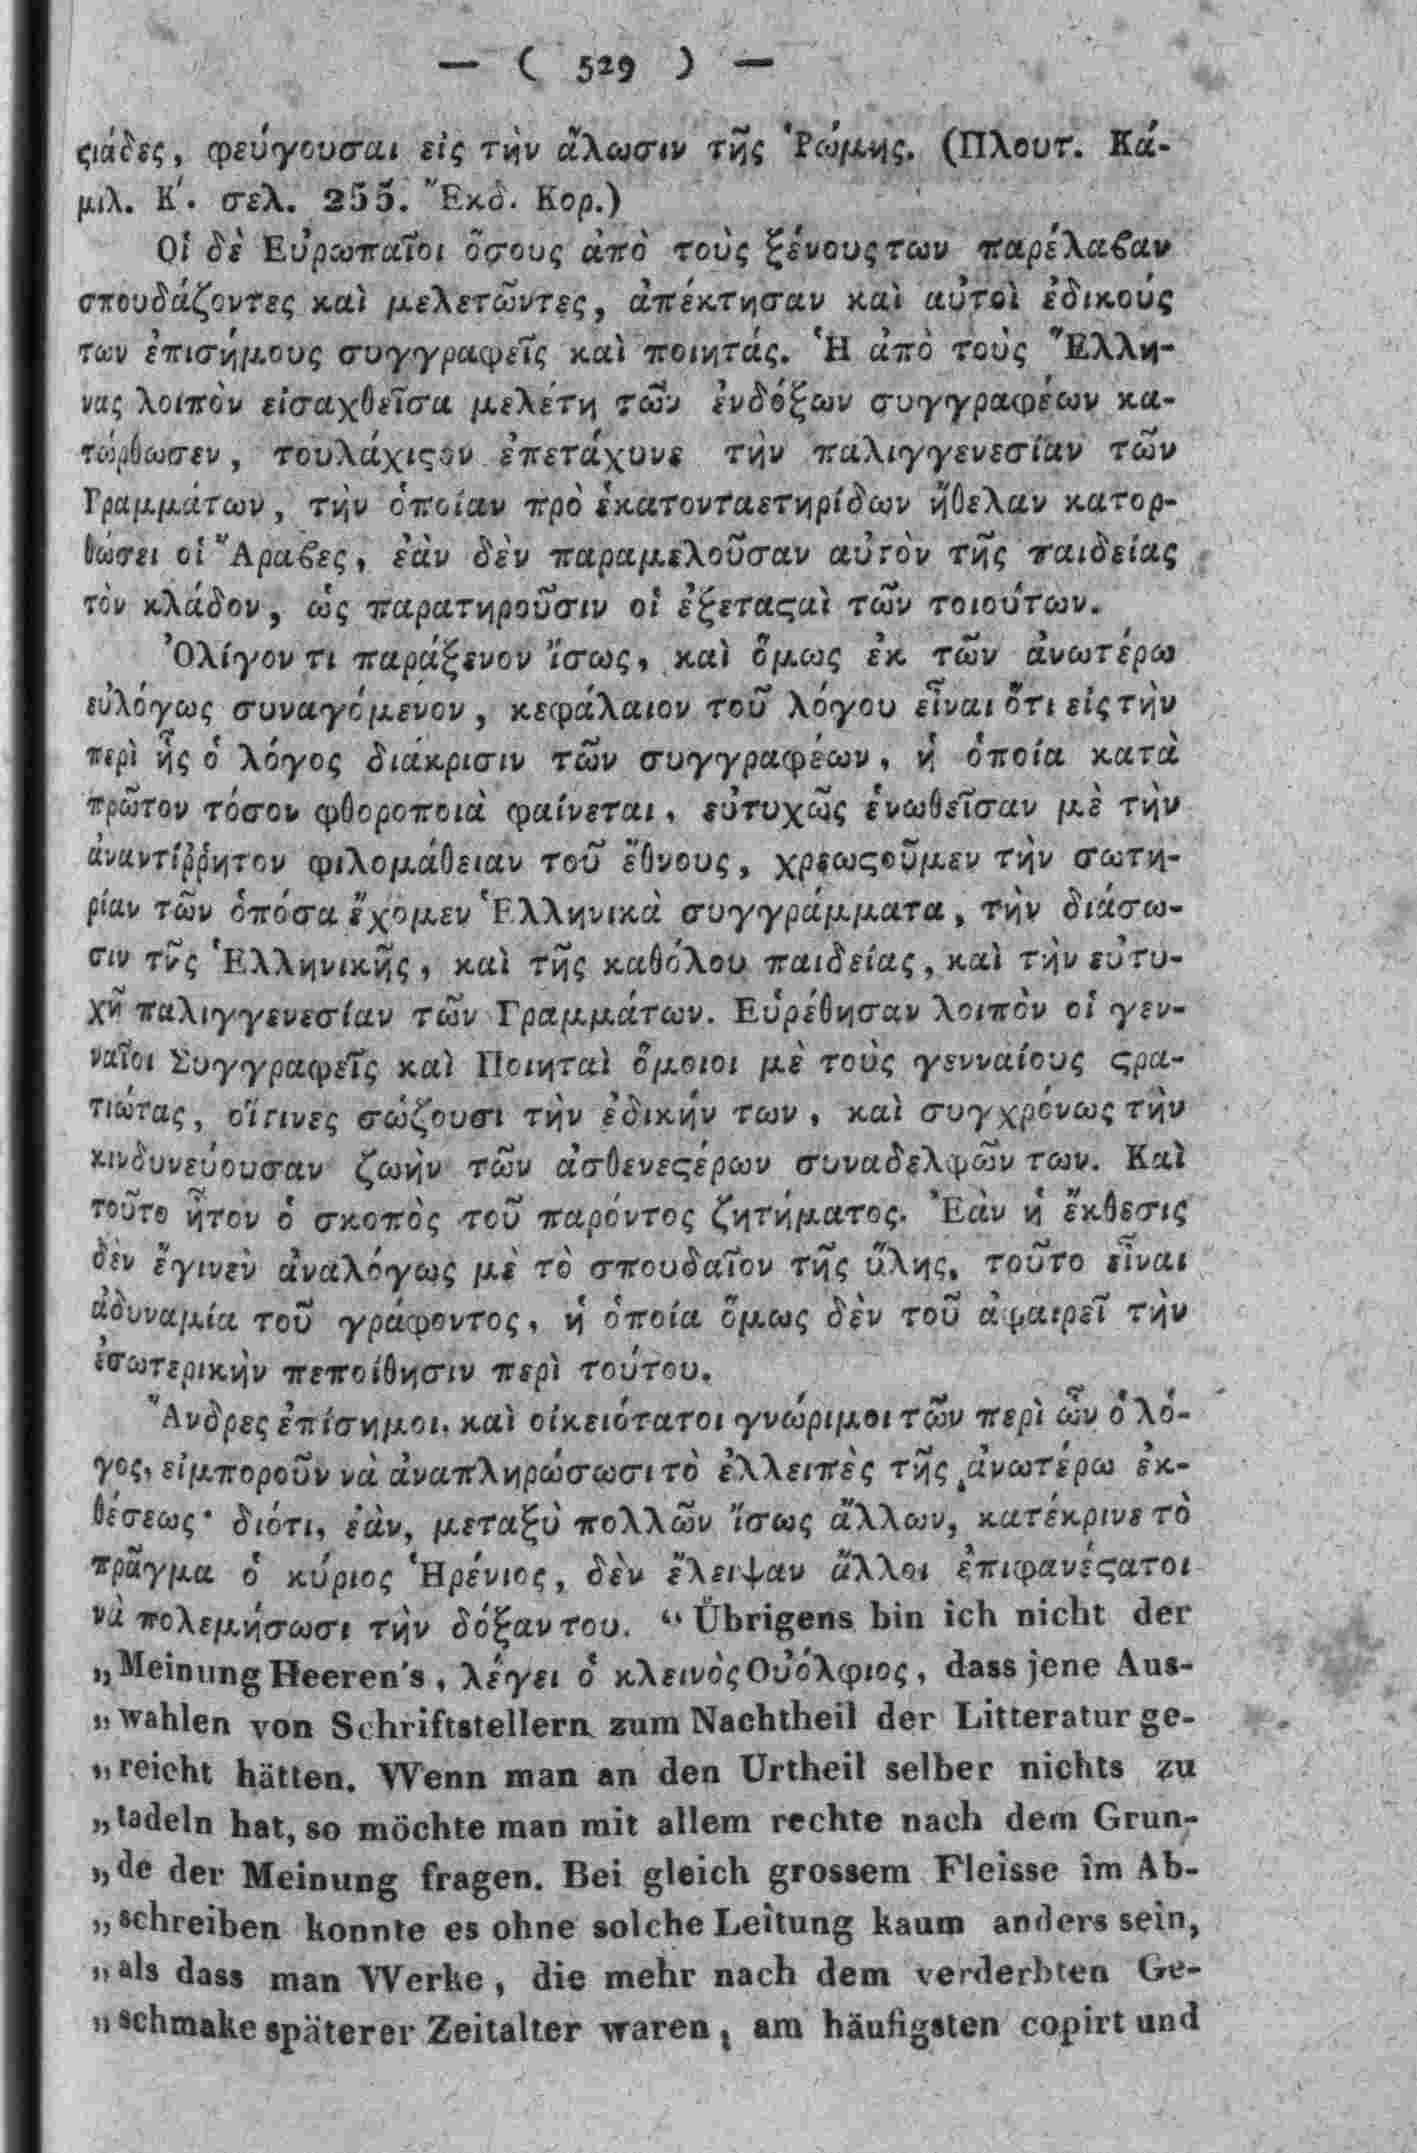 — ( 529 ) —
ϛιάδες, φεύγουσαι εἰς τὴν ἅλωσιν τῆς Ῥώμης. (Πλουτ. Κά-
μιλ. Κ΄. σελ. 255. Ἔκδ. Κορ.)
Οἱ δὲ Εὐρωπαῖοι ὅσους ἀπὸ τοὺς ξένους των παρέλαβαν
σπουδάζοντες καὶ μελετῶντες, ἀπέκτησαν καὶ αὐτοὶ ἐδικούς
των ἐπισήμους συγγραφεῖς καὶ ποιητάς. Ἡ ἀπὸ τοὺς Ἕλλη-
νας λοιπὸν εἰσαχθεῖσα μελέτη τῶν ἐνδόξων συγγραφέων κα-
τώρθωσεν, τουλάχιϛον ἐπετάχυνε τὴν παλιγγενεσίαν τῶν
Γραμμάτων, τὴν ὁποίαν πρὸ ἑκατονταετηρίδων ἤθελαν κατορ-
θώσει οἱ Ἄραβες, ἐὰν δὲν παραμελοῦσαν αὐτὸν τῆς παιδείας
τὸν κλάδον, ὡς παρατηροῦσιν οἱ ἐξεταϛαὶ τῶν τοιούτων.
Ὀλίγον τι παράξενον ἴσως, καὶ ὅμως ἐκ τῶν ἀνωτέρω
εὐλόγως συναγόμενον, κεφάλαιον τοῦ λόγου εἶναι ὅτι εἰς τὴν
περὶ ἧς ὁ λόγος διάκρισιν τῶν συγγραφέων, ἡ ὁποία κατὰ
πρῶτον τόσον φθοροποιὰ φαίνεται, εὐτυχῶς ἑνωθεῖσαν μὲ τὴν
ἀναντίῤῥητον φιλομάθειαν τοῦ ἔθνους, χρεωϛοῦμεν τὴν σωτη-
ρίαν τῶν ὁπόσα ἔχομεν Ἑλληνικὰ συγγράμματα, τὴν διάσω-
σιν τῆς Ἑλληνικῆς, καὶ τῆς καθόλου παιδείας, καὶ τὴν εὐτυ-
χῆ παλιγγενεσίαν τῶν Γραμμάτων. Εὑρέθησαν λοιπὸν οἱ γεν-
ναῖοι Συγγραφεῖς καὶ Ποιηταὶ ὅμοιοι μὲ τοὺς γενναίους ϛρα-
τιώτας, οἵτινες σώζουσι τὴν ἐδικήν των, καὶ συγχρόνως τὴν
κινδυνεύουσαν ζωὴν τῶν ἀσθενεϛέρων συναδελφῶν των. Καὶ
τοῦτο ἦτον ὁ σκοπὸς τοῦ παρόντος ζητήματος. Ἐὰν ἡ ἔκθεσις
δὲν ἔγινεν ἀναλόγως μὲ τὸ σπουδαῖον τῆς ὕλης, τοῦτο εἶναι
ἀδυναμία τοῦ γράφοντος, ἡ ὁποία ὅμως δὲν τοῦ ἀφαιρεῖ τὴν
ἐσωτερικὴν πεποίθησιν περὶ τούτου.
Ἄνδρες ἐπίσημοι, καὶ οἰκειότατοι γνώριμοι τῶν περὶ ὧν ὁ λό-
γος, εἰμποροῦν νὰ ἀναπληρώσωσι τὸ ἐλλειπὲς τῆς ἀνωτέρω ἐκ-
θέσεως· διότι, ἐὰν, μεταξὺ πολλῶν ἴσως ἄλλων, κατέκρινε τὸ
πρᾶγμα ὁ κύριος Ἡρένιος, δὲν ἔλειψαν ἄλλοι ἐπιφανέϛατοι
νὰ πολεμήσωσι τὴν δόξαν του. “ Übrigens bin ich nicht der
„Meinung Heeren's, λέγει ὁ κλεινὸς Οὐόλφιος, dass jene Aus-
„wahlen von Schriftstellern zum Nachtheil der Litteratur ge-
„reicht hätten. Wenn man an den Urtheil selber nichts zu
„tadeln hat, so möchte man mit allem rechte nach dem Grun-
„de der Meinung fragen. Bei gleich grossem Fleisse im Ab-
„schreiben konnte es ohne solche Leitung kaum anders sein,
„als dass man Werke, die mehr nach dem verderbten Ge-
„schmake späterer Zeitalter waren, am häufigsten copirt und